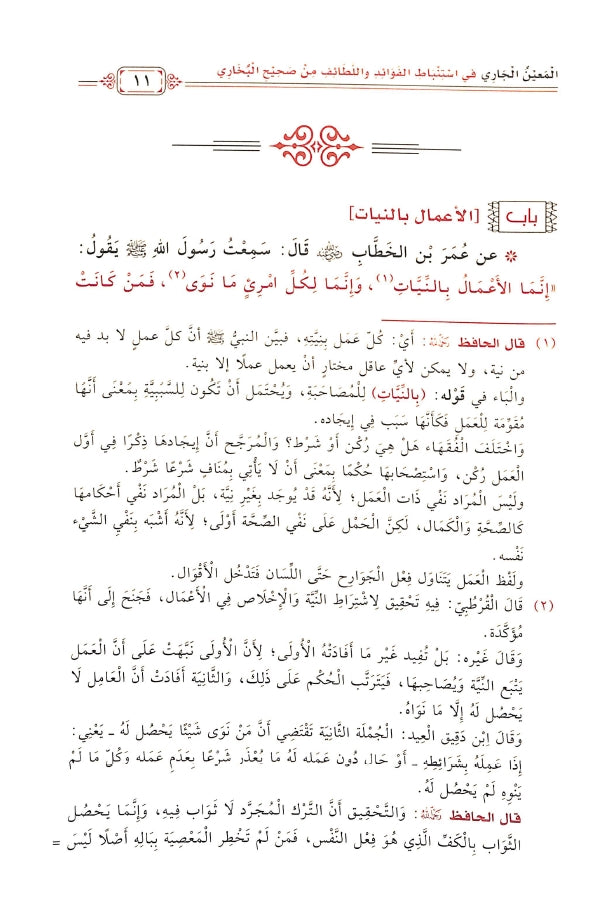 المَعِيْنُ الْجَارِي في اسْتنْبَاطِ الفَوَائِدِ واللَّطائِفِ مِنْ صَحِيْحِ الْبُخَارِي
١١
باب [الأعمال بالنيات]
* عن عُمَرَ بْنِ الخَطَّابِ ﵁ قَالَ: سَمِعْتُ رَسُولَ اللهِ ﷺ يَقُولُ:
«إِنَّمَا الأَعْمَالُ بِالنِّيَّاتِ(١)، وَإِنَّمَا لِكُلِّ امْرِئٍ مَا نَوَى(٢)، فَمَنْ كَانَتْ
(١) قال الحافظ ﵀: أَيْ: كُلّ عَمَل بِنِيَّتِهِ، فبيَّن النبيُّ ﷺ أنَّ كلَّ عملٍ لا بد فيه
من نية، ولا يمكن لأيِّ عاقل مختارٍ أنْ يعمل عملًا إلا بنية.
والْبَاء في قَوْله: (بِالنِّيَّاتِ) لِلْمُصَاحَبَةِ، وَيُحْتَمَل أَنْ تَكُون لِلسَّبَبِيَّةِ بِمَعْنَى أَنَّهَا
مُقَوِّمَة لِلْعَمَلِ فَكَأَنَّهَا سَبَب فِي إِيجَاده.
وَاخْتَلَفَ الْفُقَهَاء هَلْ هِيَ رُكْن أَوْ شَرْط؟ وَالْمُرَجَّح أَنَّ إِيجَادهَا ذِكْرًا فِي أَوَّل
الْعَمَل رُكْن، وَاسْتِصْحَابهَا حُكْمًا بِمَعْنَى أَنْ لَا يَأْتِي بِمُنَافٍ شَرْعًا شَرْطٌ.
وَلَيْسَ الْمُرَاد نَفْي ذَات الْعَمَل؛ لِأَنَّهُ قَدْ يُوجَد بِغَيْرِ نِيَّة، بَلْ الْمُرَاد نَفْي أَحْكَامهَا
كَالصِّحَّةِ وَالْكَمَال، لَكِنَّ الْحَمْل عَلَى نَفْي الصِّحَّة أَوْلَى؛ لِأَنَّهُ أَشْبَه بِنَفْيِ الشَّيْء
نَفْسه.
ولَفْظ الْعَمَل يَتَنَاوَل فِعْل الْجَوَارِح حَتَّى اللِّسَان فَتَدْخُل الْأَقْوَال.
(٢) قَالَ الْقُرْطُبِيّ: فِيهِ تَحْقِيق لِاشْتِرَاطِ النِّيَّة وَالْإِخْلَاص فِي الْأَعْمَال، فَجَنَحَ إِلَى أَنَّهَا
مُؤَكَّدَة.
وَقَالَ غَيْره: بَلْ تُفِيد غَيْر مَا أَفَادَتْهُ الْأُولَى؛ لِأَنَّ الْأُولَى نَبَّهَتْ عَلَى أَنَّ الْعَمَل
يَتْبَع النِّيَّة وَيُصَاحِبهَا، فَيَتَرَتَّب الْحُكْم عَلَى ذَلِكَ، وَالثَّانِيَة أَفَادَتْ أَنَّ الْعَامِل لَا
يَحْصُل لَهُ إِلَّا مَا نَوَاهُ.
وَقَالَ اِبْن دَقِيق الْعِيد: الْجُمْلَة الثَّانِيَة تَقْتَضِي أَنَّ مَنْ نَوَى شَيْئًا يَحْصُل لَهُ ـ يَعْنِي:
إِذَا عَمِلَهُ بِشَرَائِطِهِ ـ أَوْ حَالَ دُون عَمَله لَهُ مَا يُعْذَر شَرْعًا بِعَدَمِ عَمَله وَكُلّ مَا لَمْ
يَنْوِهِ لَمْ يَحْصُل لَهُ.
قال الحافظ ﵀: وَالتَّحْقِيق أَنَّ التَّرْك الْمُجَرَّد لَا ثَوَاب فِيهِ، وَإِنَّمَا يَحْصُل
الثَّوَاب بِالْكَفِّ الَّذِي هُوَ فِعْل النَّفْس، فَمَنْ لَمْ تَخْطِر الْمَعْصِيَة بِبَالِهِ أَصْلًا لَيْسَ =